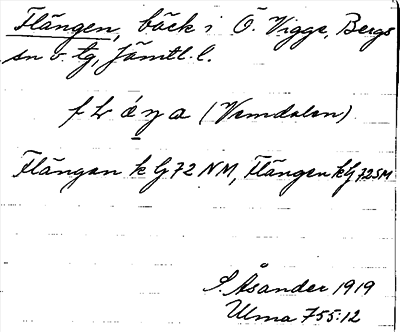 Flängen, bäck i Ö. Vigge, Bergs
sn o. tg, Jämtl. l.
f L ǽ ŋ a (Vemdalen)
Flängan k G 72 NM, Flängen k G 72 SM
S. Åsander 1919
Ulma 755:12